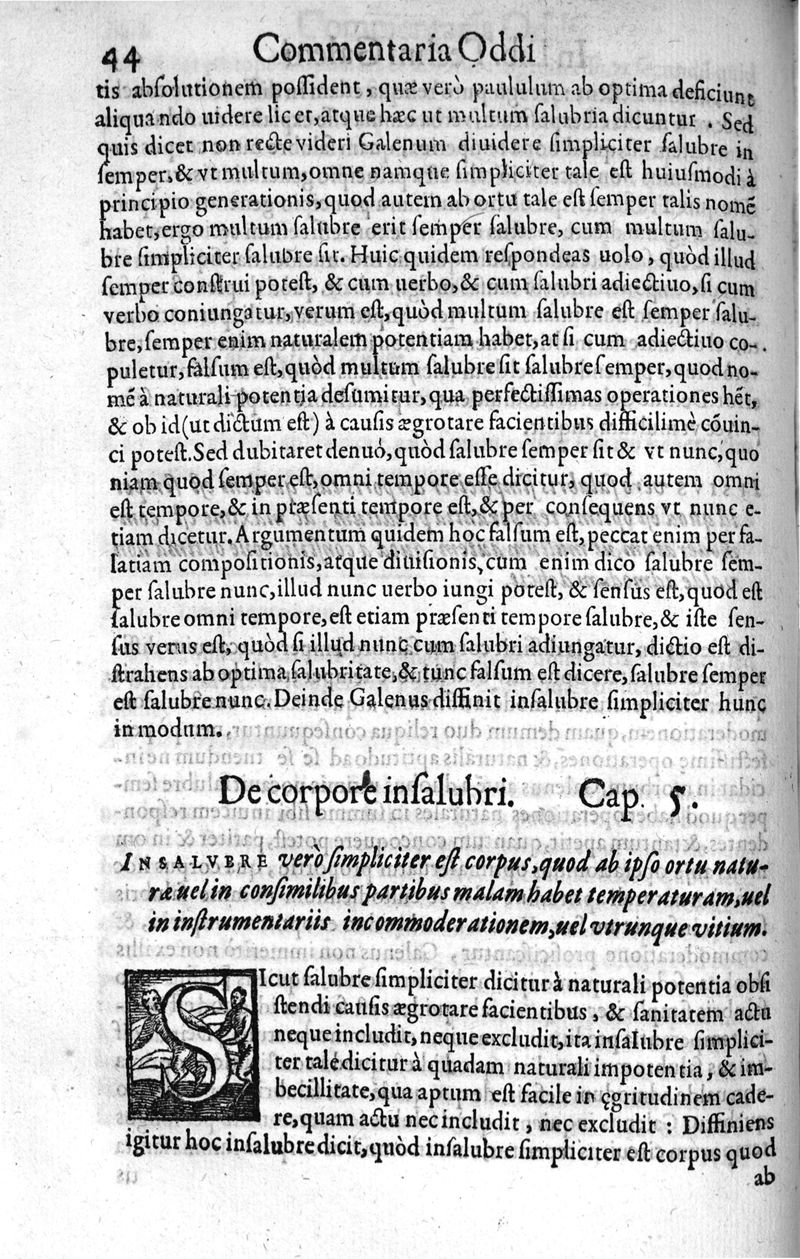 44 Commentaria Oddi
tis absolutionem possident, quæ verò paululum ab optima deficiunt
aliquando uidere licet, atque hæc ut multum salubria dicuntur. Sed
quis dicet non recte videri Galenum diuidere simpliciter salubre in
semper, & vt multum, omne namque simpliciter tale est huiusmodi à
principio generationis, quod autem ab ortu tale est semper talis nomẽ
habet, ergo multum salubre erit semper salubre, cum multum salu-
bre simpliciter salubre sit. Huic quidem respondeas uolo, quòd illud
semper construi potest, & cum uerbo, & cum salubri adiectiuo, si cum
verbo coniungatur, verum est, quòd multum salubre est semper salu-
bre, semper enim naturalem potentiam habet, at si cum adiectiuo co-
puletur, falsum est, quòd multum salubre sit salubre semper, quod no-
mẽ à naturali potentia desumitur, qua perfectissimas operationes hẽt,
& ob id (ut dictum est) à causis ægrotare facientibus difficilimè cõuin-
ci potest. Sed dubitaret denuó, quòd salubre semper sit & vt nunc, quo
niam quod semper est, omni tempore esse dicitur, quod autem omni
est tempore, & in præsenti tempore est, & per consequens vt nunc e-
tiam dicetur. Argumentum quidem hoc falsum est, peccat enim per fa-
latiam compositionis, atque diuisionis, cum enim dico salubre sem-
per salubre nunc, illud nunc uerbo iungi potest, & sensus est, quod est
salubre omni tempore, est etiam præsenti tempore salubre, & iste sen-
sus verus est, quòd si illud nunc cum salubri adiungatur, dictio est di-
strahens ab optima salubritate, & tunc falsum est dicere, salubre semper
est salubre nunc. Deinde Galenus diffinit insalubre simpliciter hunc
in modum.
De corpore insalubri. Cap. 5.
INSALVBRE verò simpliciter est corpus, quod ab ipso ortu natu-
ræ uel in consimilibus partibus malam habet temperaturam, uel
in instrumentariis incommoderationem, uel vtrunque vitium.
SIcut salubre simpliciter dicitur à naturali potentia obsi
stendi causis ægrotare facientibus, & sanitatem actu
neque includit, neque excludit, ita insalubre simplici-
ter tale dicitur à quadam naturali impotentia, & im-
becillitate, qua aptum est facile in ęgritudinem cade-
re, quam actu nec includit, nec excludit : Diffiniens
igitur hoc insalubre dicit, quòd insalubre simpliciter est corpus quod
ab